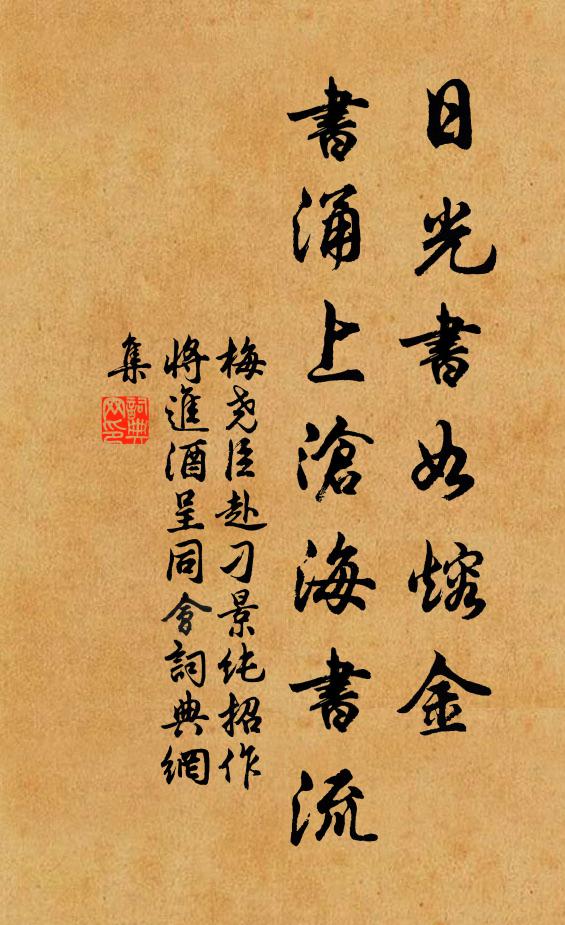 日光書如熔金
書涌上滄海書流
梅尧臣赴刁景纯招作
將進酒呈同會詞典網
集
詞典
网印